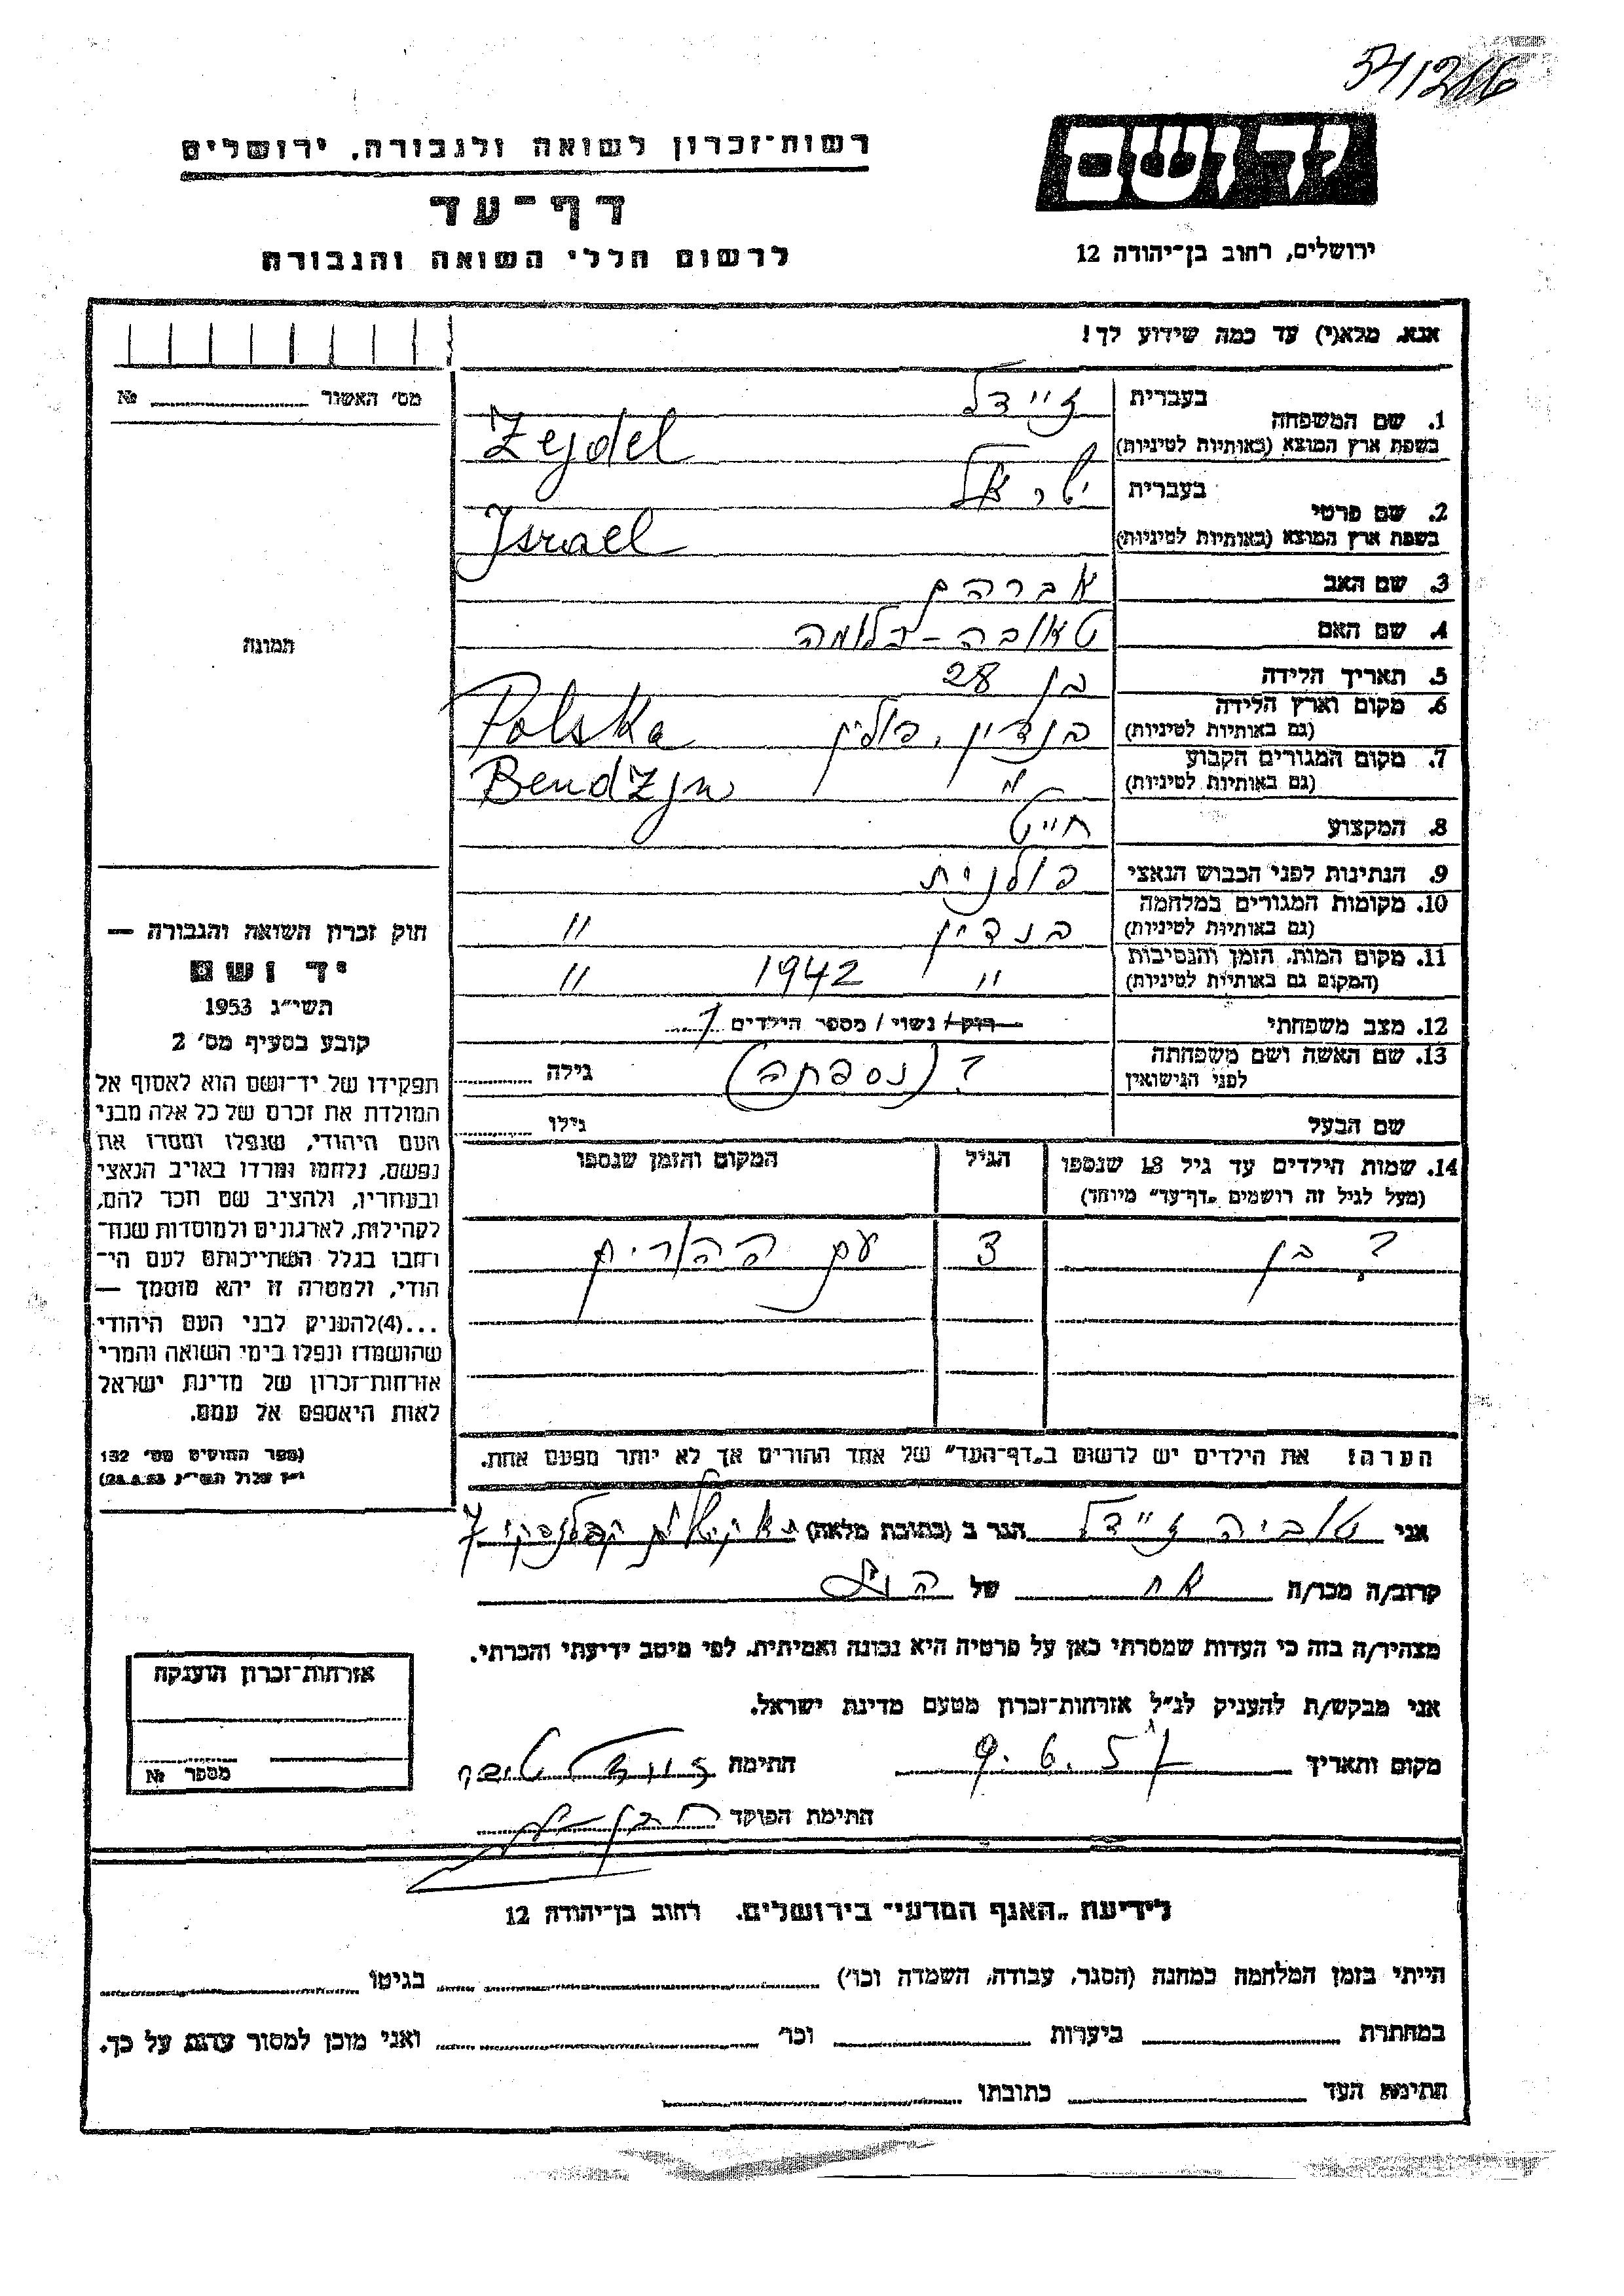 יד ושם
ירושלים, רחוב בן־יהודה 12
רשות־זכרון לשואה ולגבורה, ירושלים
דף־עד
לרשום חללי השואה והגבורה
אנא, מלא(י) עד כמה שידוע לך!
1. שם המשפחה בעברית זיידל
בשפת ארץ המוצא (באותיות לטיניות) Zejdel
2. שם פרטי בעברית ישראל
בשפת ארץ המוצא (באותיות לטיניות) Israel
3. שם האב אברהם
4. שם האם טאובה-בלומה
5. תאריך הלידה בן 28
6. מקום וארץ הלידה (גם באותיות לטיניות) בנדין, פולין Polska
7. מקום המגורים הקבוע (גם באותיות לטיניות) " Bendzyn
8. המקצוע חייט
9. הנתינות לפני הכבוש הנאצי פולנית
10. מקומות המגורים במלחמה (גם באותיות לטיניות) בנדין "
11. מקום המות, הזמן והנסיבות (המקום גם באותיות לטיניות) " 1942 "
12. מצב משפחתי רוק/ נשוי / מספר הילדים 1
13. שם האשה ושם משפחתה לפני הנישואין ? (נספתה) גילה
שם הבעל גילו
14. שמות הילדים עד גיל 18 שנספו הגיל המקום והזמן שנספו
(מעל לגיל זה רושמים „דף־עד" מיוחד)
? בן 3 עם ההורים
הערה! את הילדים יש לרשום ב„דף־העד" של אחד ההורים אך לא יותר מפעם אחת.
מס' האשור №
תמונה
חוק זכרון השואה והגבורה —
יד ושם
תשי"ג 1953
קובע בסעיף מס' 2
תפקידו של יד־ושם הוא לאסוף אל
המולדת את זכרם של כל אלה מבני
העם היהודי, שנפלו ומסרו את
נפשם, נלחמו ומרדו באויב הנאצי
ובעוזריו, ולהציב שם וזכר להם,
לקהילות, לארגונים ולמוסדות שנח־
רבו בגלל השתייכותם לעם הי־
הודי, ולמטרה זו יהא מוסמך —
...(4) להעניק לבני העם היהודי
שהושמדו ונפלו בימי השואה והמרי
אזרחות־זכרון של מדינת ישראל
לאות היאספם אל עמם.
(ספר החוקים מס' 132
י"ז אלול תשי"ג 28.8.53)
אני טוביה זיידל הגר ב (כתובת מלאה) 7
קרוב/ה מכר/ה אח של הנ"ל
מצהיר/ה בזה כי העדות שמסרתי כאן על פרטיה היא נכונה ואמיתית, לפי מיטב ידיעתי והכרתי.
אני מבקש/ת להעניק לנ"ל אזרחות־זכרון מטעם מדינת ישראל.
מקום ותאריך 9.6.57 חתימה זיידל טוביה
חתימת הפוקד
אזרחות־זכרון הוענקה
מספר №
לידיעת „האגף המדעי" בירושלים, רחוב בן־יהודה 12
הייתי בזמן המלחמה במחנה (הסגר, עבודה, השמדה וכו') בגיטו
במחתרת ביערות וכו' ואני מוכן למסור עדות על כך.
חתימת העד כתובתו